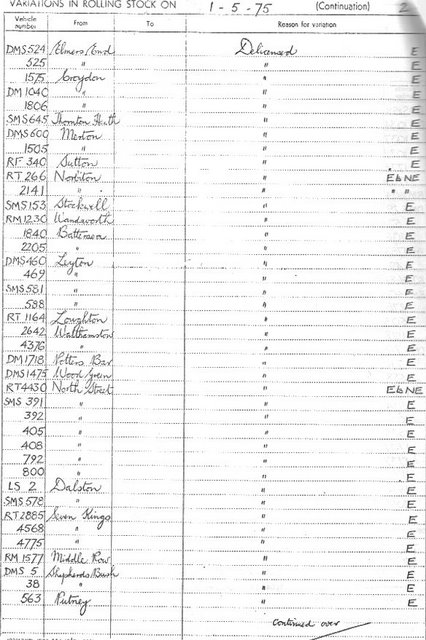 VARIATIONS IN ROLLING STOCK ON 1-5-75 (Continuation) 2
Vehicle number From To Reason for variation
DMS 524 Elmers End Delicensed E
525 " " E
1575 Croydon " E
DM 1040 " " E
1806 " " E
SMS 645 Thornton Heath " E
DMS 600 Merton " E
1505 " " E
RF 340 Sutton " E
RT 266 Norbiton " E & NE
2141 " " " "
SMS 153 Stockwell " E
RM 1230 Wandsworth " E
1840 Battersea " E
2205 " " E
DMS 460 Leyton " E
469 " " E
SMS 581 " " E
588 " " E
RT 1164 Loughton " E
2642 Walthamstow " E
4376 " " E
DM 1718 Potters Bar " E
DMS 1475 Wood Green " E
RT 4430 North Street " E & NE
SMS 391 " " E
392 " " E
405 " " E
408 " " E
792 " " E
800 " " E
LS 2 Dalston " E
SMS 578 " " E
RT 2885 Seven Kings " E
4568 " " E
4775 " " E
RM 1577 Middle Row " E
DMS 5 Shepherds Bush " E
38 " " E
563 Putney " E
continued over